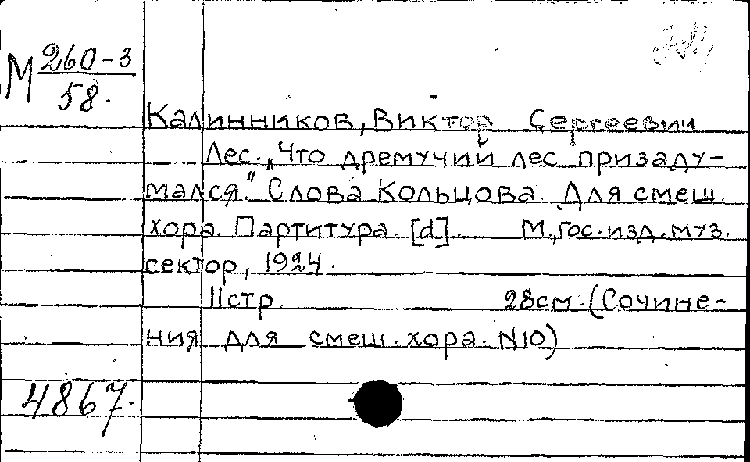 М 260-3
58.
Калинников, Виктор Сергеевич
Лес. „Что дремучий лес призаду-
мался." Слова Кольцова. Для смеш.
хора. Партитура. [d]. М., Гос. изд. муз.
сектор, 1924.
11стр. 28см. (Сочине-
ния для смеш. хора. N10)
4867.